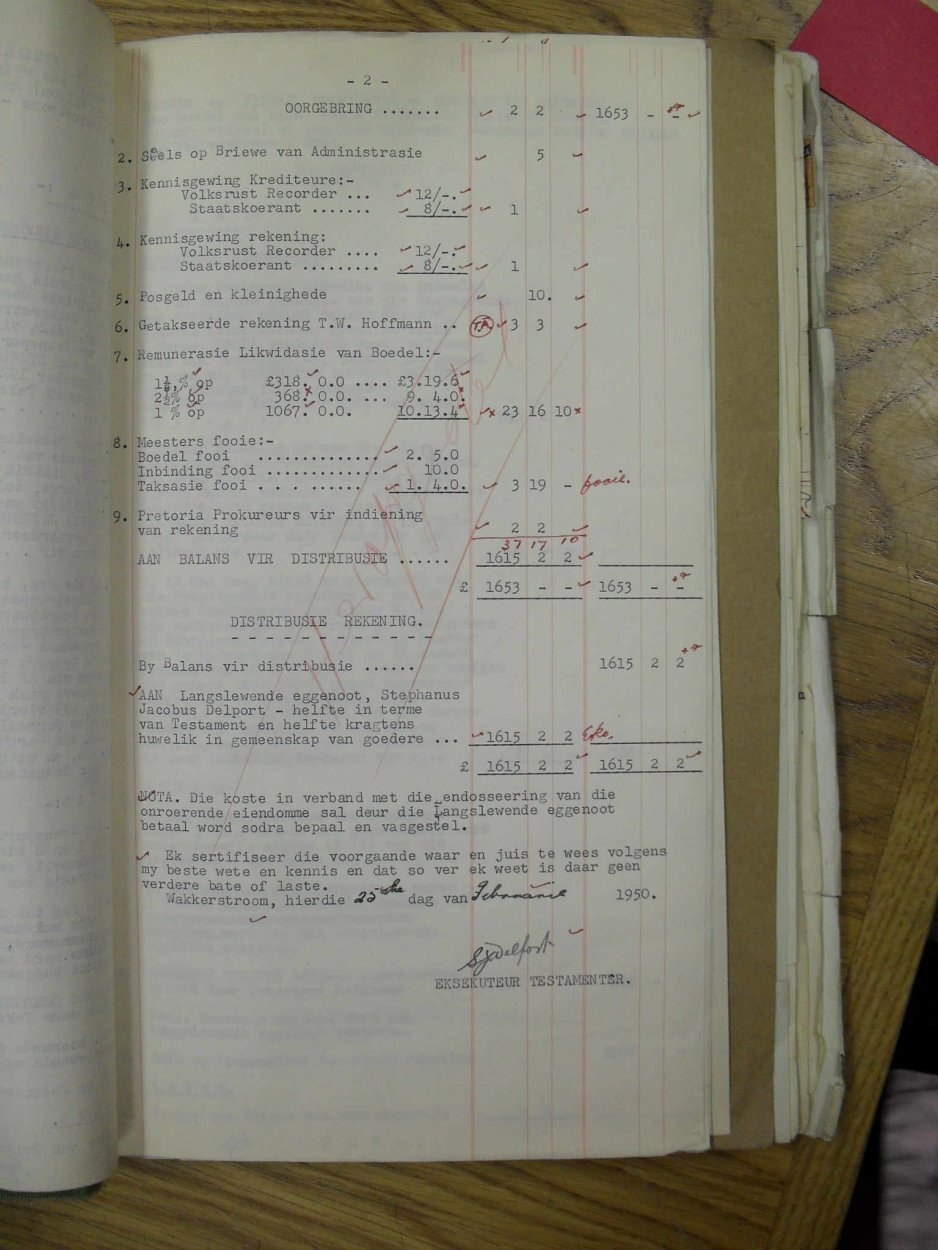 - 2 -
OORGEBRING ....... 2 2 1653 - -
2. Seels op Briewe van Administrasie 5
3. Kennisgewing Krediteure:-
Volksrust Recorder ... 12/-.
Staatskoerant ....... 8/-. 1
4. Kennisgewing rekening:
Volksrust Recorder .... 12/-.
Staatskoerant ......... 8/-. 1
5. Posgeld en kleinighede 10.
6. Getakseerde rekening T.W. Hoffmann .. T.A. 3 3
7. Remunerasie Likwidasie van Boedel:-
1¼,% op £318. 0.0 .... £3.19.6
2½% op 368. 0.0. ... 9. 4.0.
1 % op 1067. 0.0. 10.13.4 x 23 16 10 x
8. Meesters fooie:-
Boedel fooi .............. 2. 5.0
Inbinding fooi ............ 10.0
Taksasie fooi . . . ...... 1. 4.0. 3 19 - fooie.
9. Pretoria Prokureurs vir indiening
van rekening 2 2
37 17 10
AAN BALANS VIR DISTRIBUSIE ...... 1615 2 2
£ 1653 - - 1653 - -
DISTRIBUSIE REKENING.
- - - - - - - - - - - - -
By Balans vir distribusie ...... 1615 2 2
AAN Langslewende eggenoot, Stephanus
Jacobus Delport - helfte in terme
van Testament en helfte kragtens
huwelik in gemeenskap van goedere ... 1615 2 2
£ 1615 2 2 1615 2 2
NOTA. Die koste in verband met die endosseering van die
onroerende eiendomme sal deur die Langslewende eggenoot
betaal word sodra bepaal en vasgestel.
Ek sertifiseer die voorgaande waar en juis te wees volgens
my beste wete en kennis en dat so ver ek weet is daar geen
verdere bate of laste.
Wakkerstroom, hierdie 25ste dag van Februarie 1950.
SJDelport
EKSEKUTEUR TESTAMENTER.